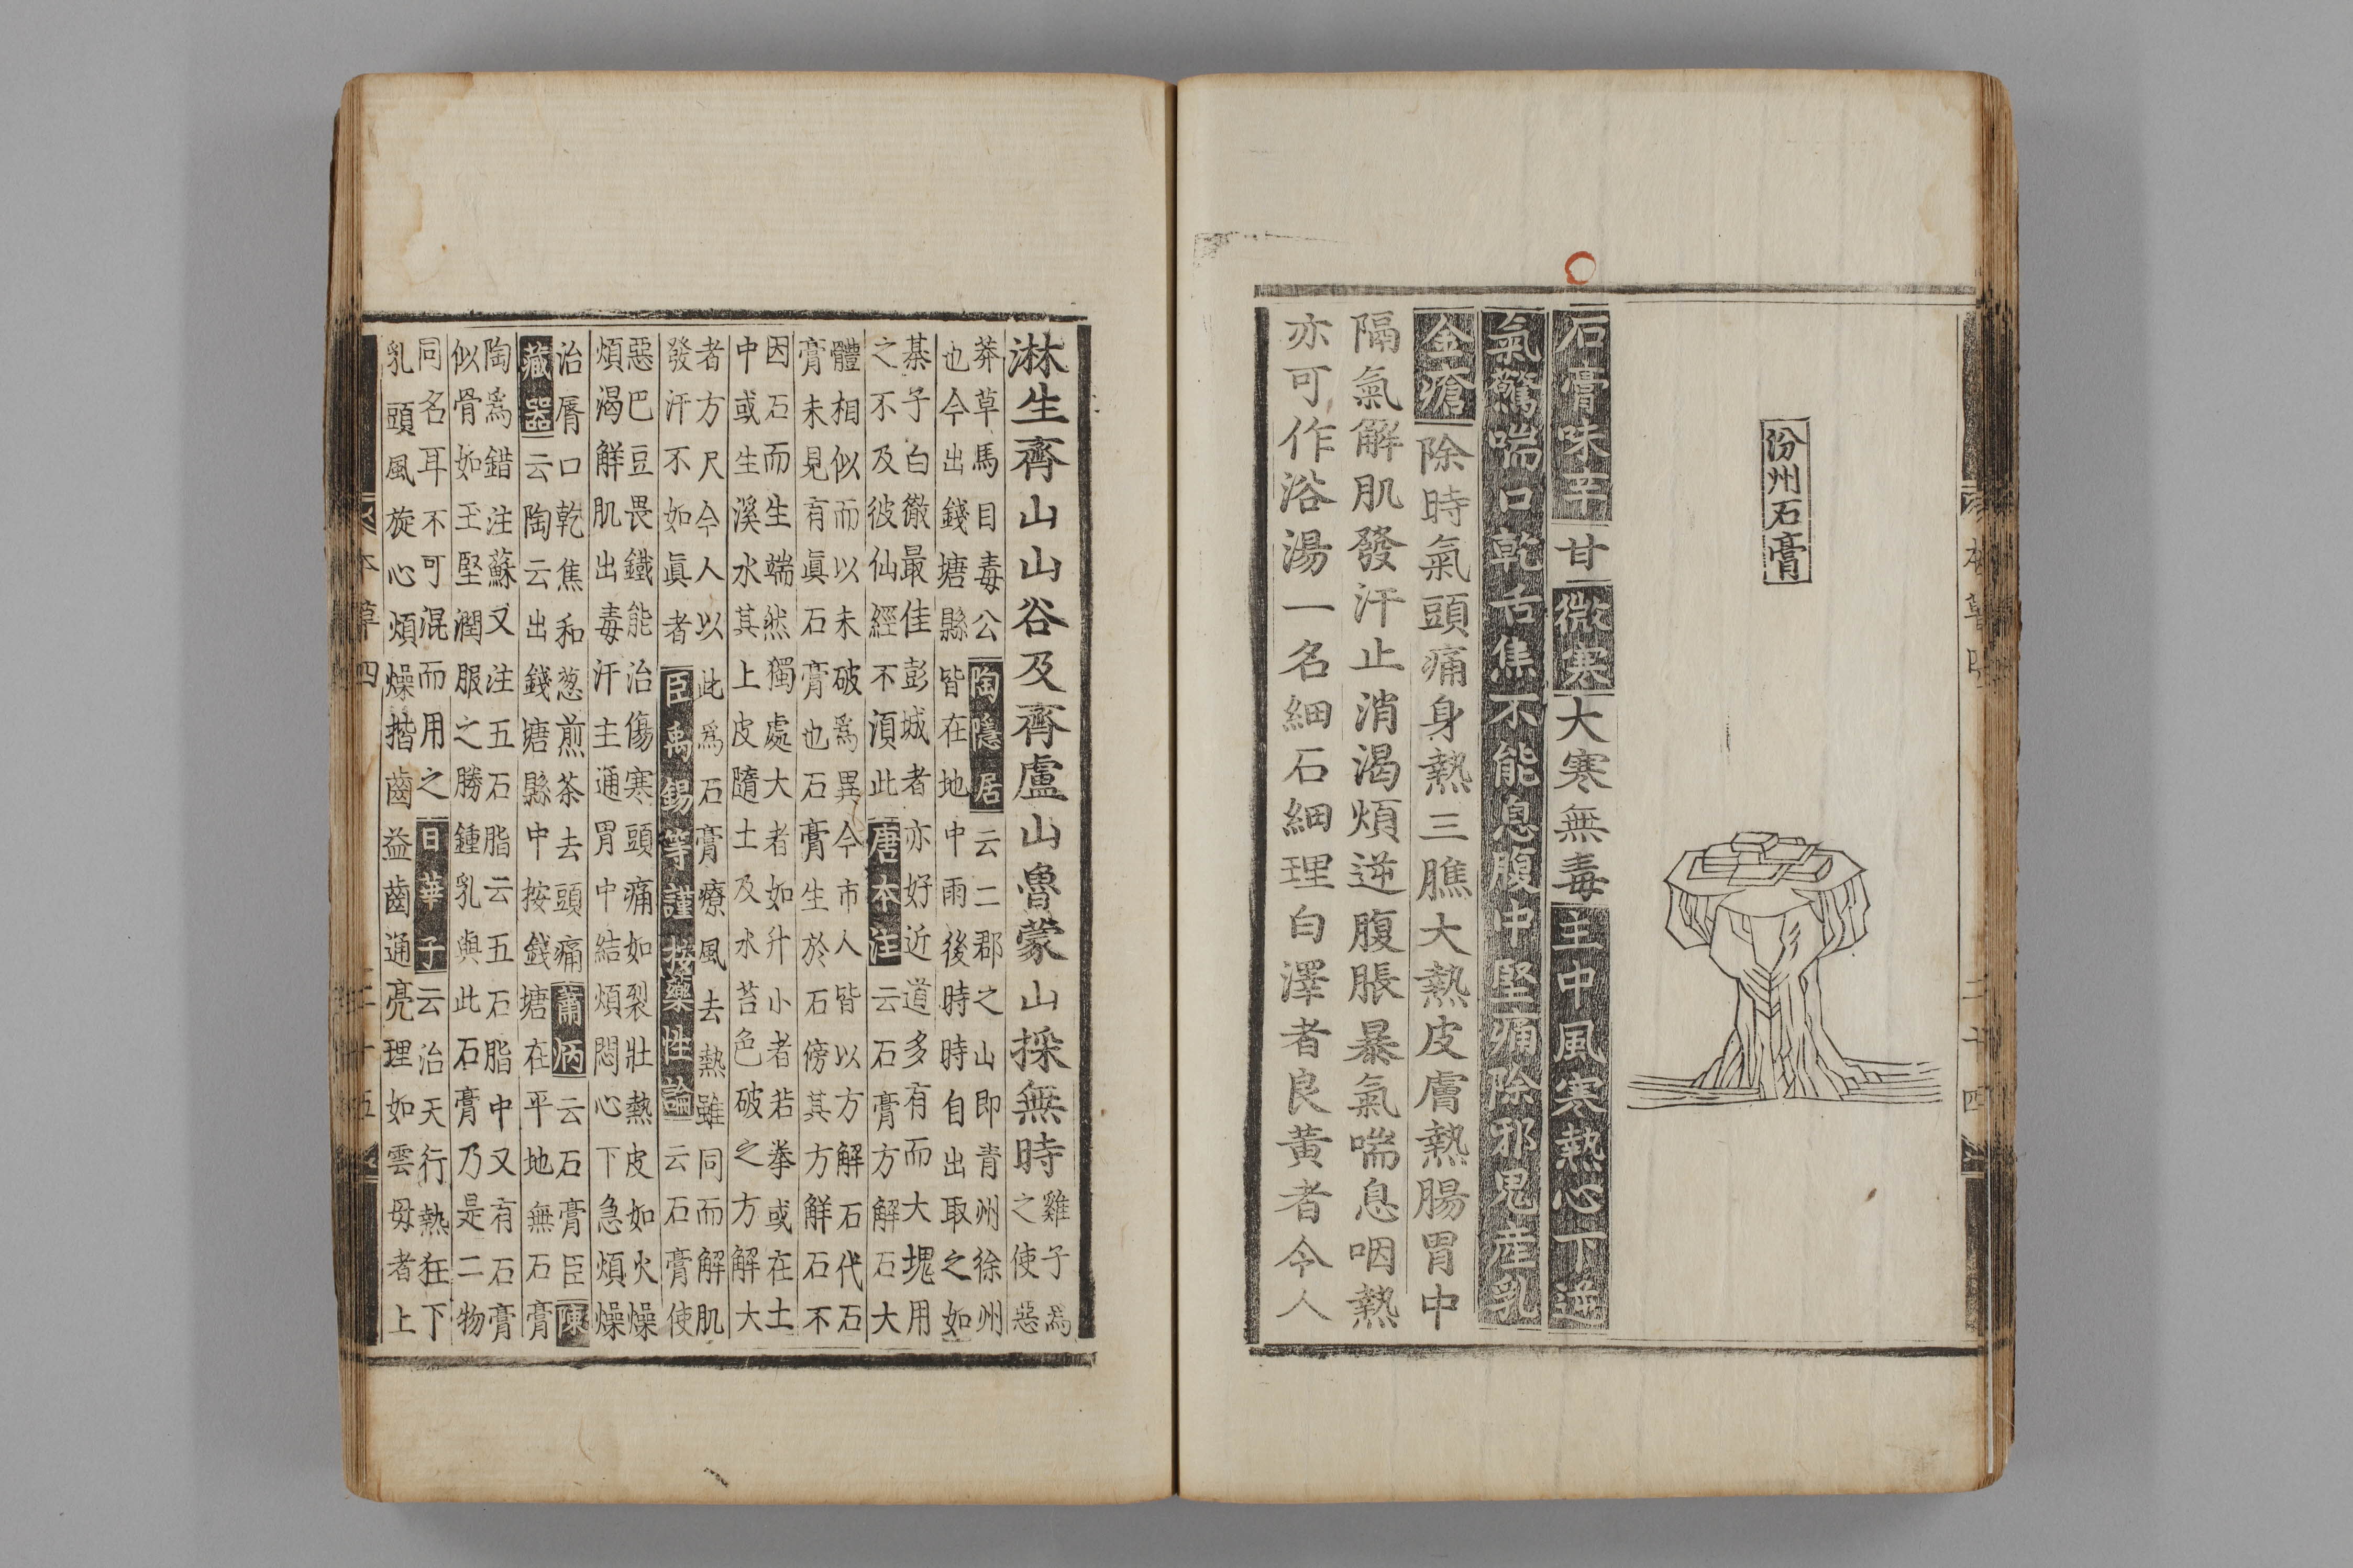 本草四
二十四
汾州石膏
石膏味辛甘微寒大寒無毒主中風寒熱心下逆
氣驚喘口乾舌焦不能息腹中堅痛除邪鬼産乳
金瘡除時氣頭痛身熱三膲大熱皮膚熱腸胃中
隔氣解肌發汗止消渴煩逆腹脹暴氣喘息咽熱
亦可作浴湯一名細石細理白澤者良黃者令人
淋生齊山山谷及齊盧山魯蒙山採無時
雞子爲
之使惡
莽草馬目毒公陶隱居云二郡之山即青州徐州
也今出錢塘縣皆在地中雨後時時自出取之如
棊子白徹最佳彭城者亦好近道多有而大塊用
之不及彼仙經不湏此唐本注云石膏方解石大
體相似而以未破爲異今市人皆以方解石代石
膏未見有眞石膏也石膏生於石傍其方解石不
因石而生端然獨處大者如升小者若拳或在土
中或生溪水其上皮隨土及水苔色破之方解大
者方尺今人以此爲石膏療風去熱雖同而解肌
發汗不如眞者臣禹錫等謹按藥性論云石膏使
惡巴豆畏鐵能治傷寒頭痛如裂壯熱皮如火燥
煩渴解肌出毒汗主通胃中結煩悶心下急煩燥
治脣口乾焦和葱煎茶去頭痛蕭炳云石膏臣陳
藏器云陶云出錢塘縣中按錢塘在平地無石膏
陶爲錯注蘇又注五石脂云五石脂中又有石膏
似骨如玉堅潤服之勝鍾乳與此石膏乃是二物
同名耳不可混而用之日華子云治天行熱狂下
乳頭風旋心煩燥揩齒益齒通亮理如雲母者上
本草四
二十五